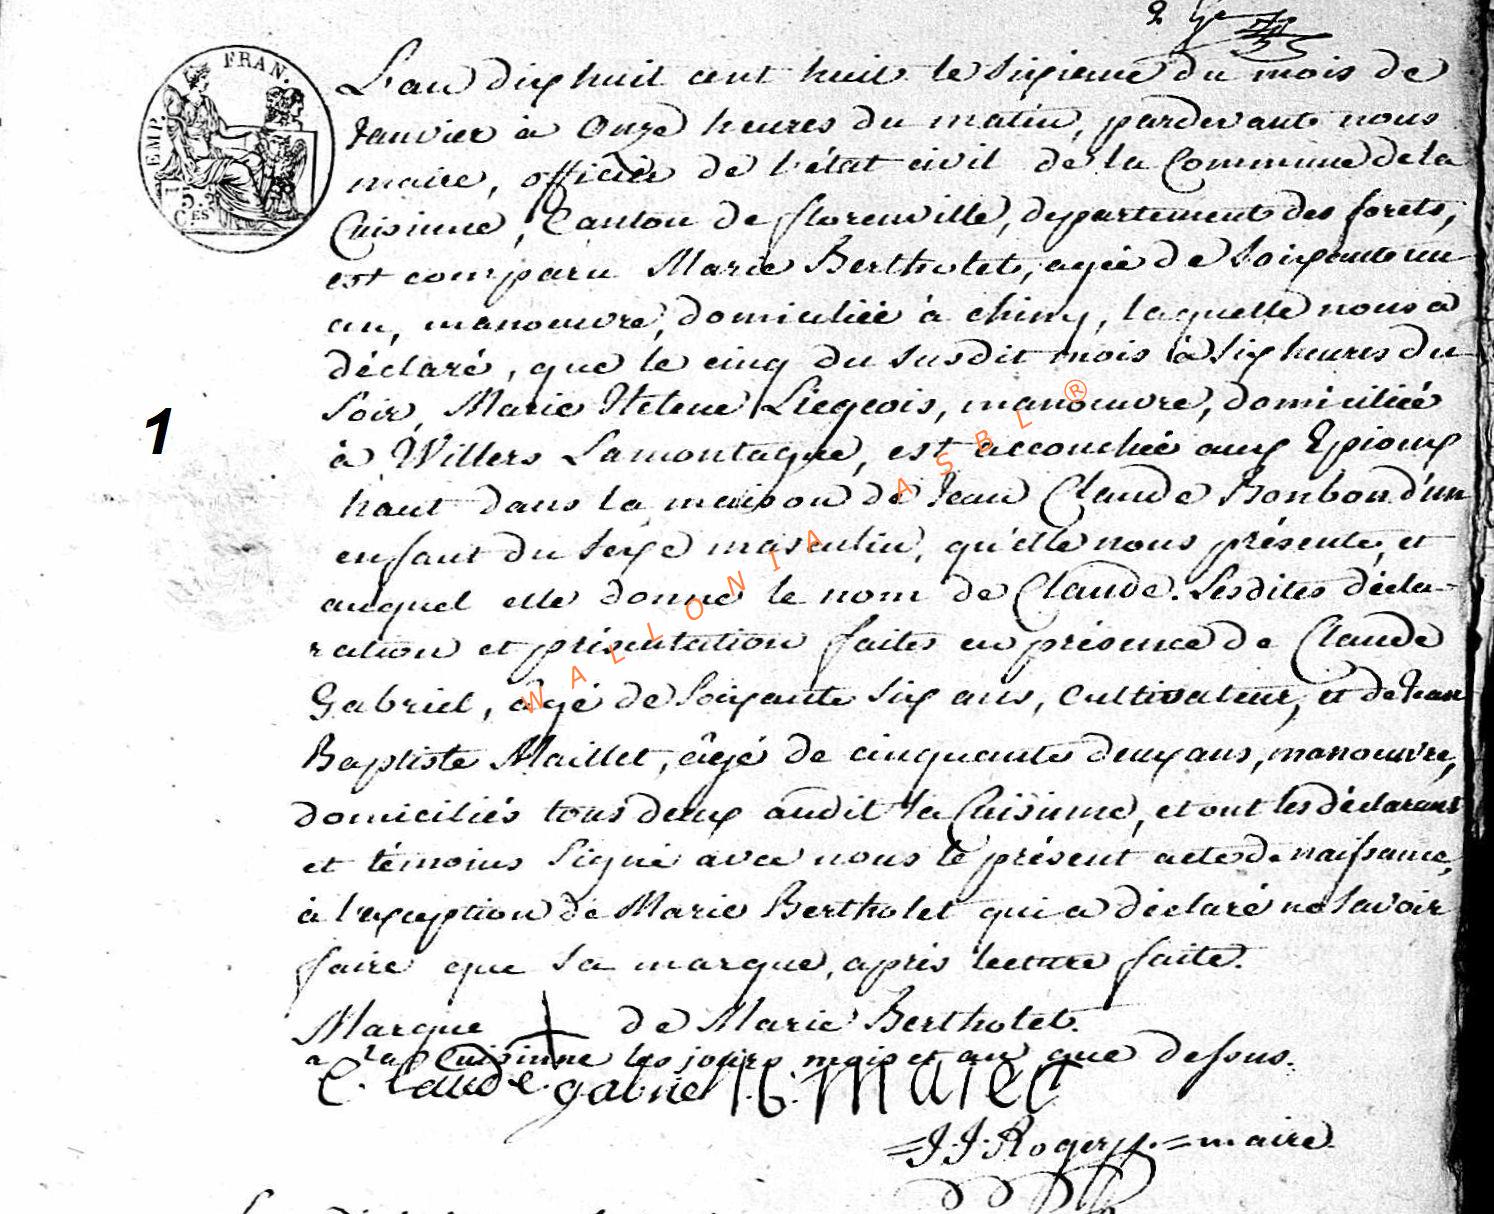 2
EMP. FRAN.
75.
CES
L'an dix huit cent huit le sixieme du mois de
Janvier à Onze heures du matin, pardevant nous
maire, officier de l'état civil de la Commune de la
Cuisinne, Canton de florenville, departement des forets,
est comparu Marie Bertholet, agée de Soixante un
an, manouvre, domiciliée à chiny, laquelle nous a
déclaré, que le cinq du susdit mois à six heures du
Soir, Marie Helene Liegeois, manouvre, domiciliée
à Willers Lamontagne, est accouchée aux Epioux
haut dans la maison de Jean Claude Bonbon d'un
enfant du sexe masculin, qu'elle nous présente, et
auquel elle donne le nom de Claude. Lesdites décla-
ration et présentation faites en présence de Claude
Gabriel, agé de Soixante Six ans, Cultivateur, et de Jean
Baptiste Maillet, âgé de cinquante deux ans, manouvre,
domiciliés tous deux audit la Cuisinne, et ont les déclarans
et témoins Signé avec nous le présent acte de naissance,
à l'exception de Marie Bertholet qui a déclaré ne Savoir
faire que Sa marque, après lecture faite.
Marque de Marie Bertholet.
a la Cuisinne les jours mois et an que desus.
C. laude gabriel J. b. maiet
= J. J. Roger = maire
1
WALLONIA ASBL ®